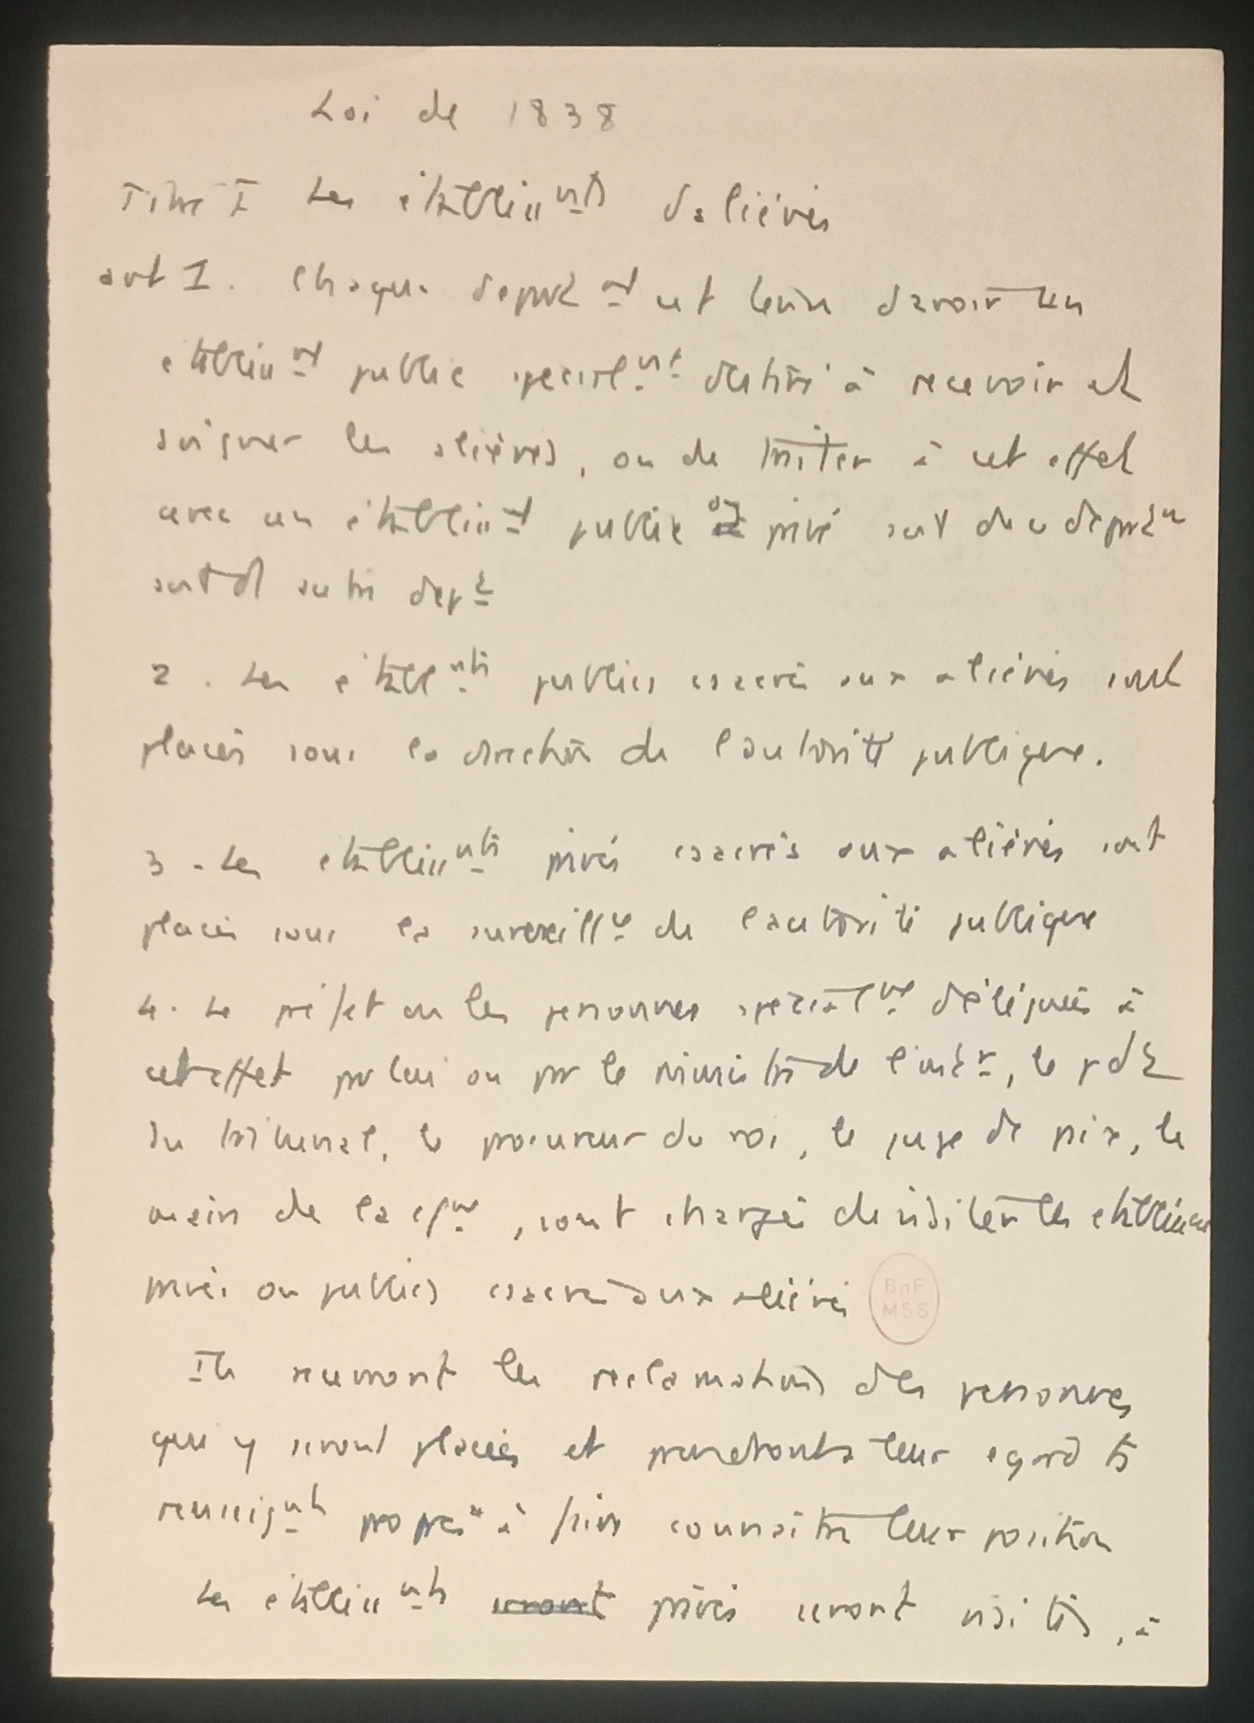 Loi de 1838
Titre I Les établissnts d'aliénés
art I. Chaque départ nt est tenu d'avoir un
établissnt public spécialnt destiné à recevoir et
soigner les aliénés, ou de traiter à cet effet
avec un établissnt public ou privé soit de ce départ
soit d'1 autre dept
2. Les établnts publics csacrés aux aliénés sont
placés sous la direction de l'autorité publique.
3 - Les établissnts privés csacrés aux aliénés sont
placés sous la surveillce de l'autorité publique
4. Le préfet ou les personnes spécialnt déléguées à
cet effet par lui ou par le ministre de l'intr, le pdt
du tribunal, le procureur du roi, le juge de paix, le
maire de la cne, sont chargés de visiter les établissnts
privés ou publics csacrés aux aliénés
BnF
MSS
Ils recevront les réclamations des personnes
qui y seront placées et prendront à leur égard ts
renseignts propres à faire connaître leur position
Les établissnts privés seront visités, à